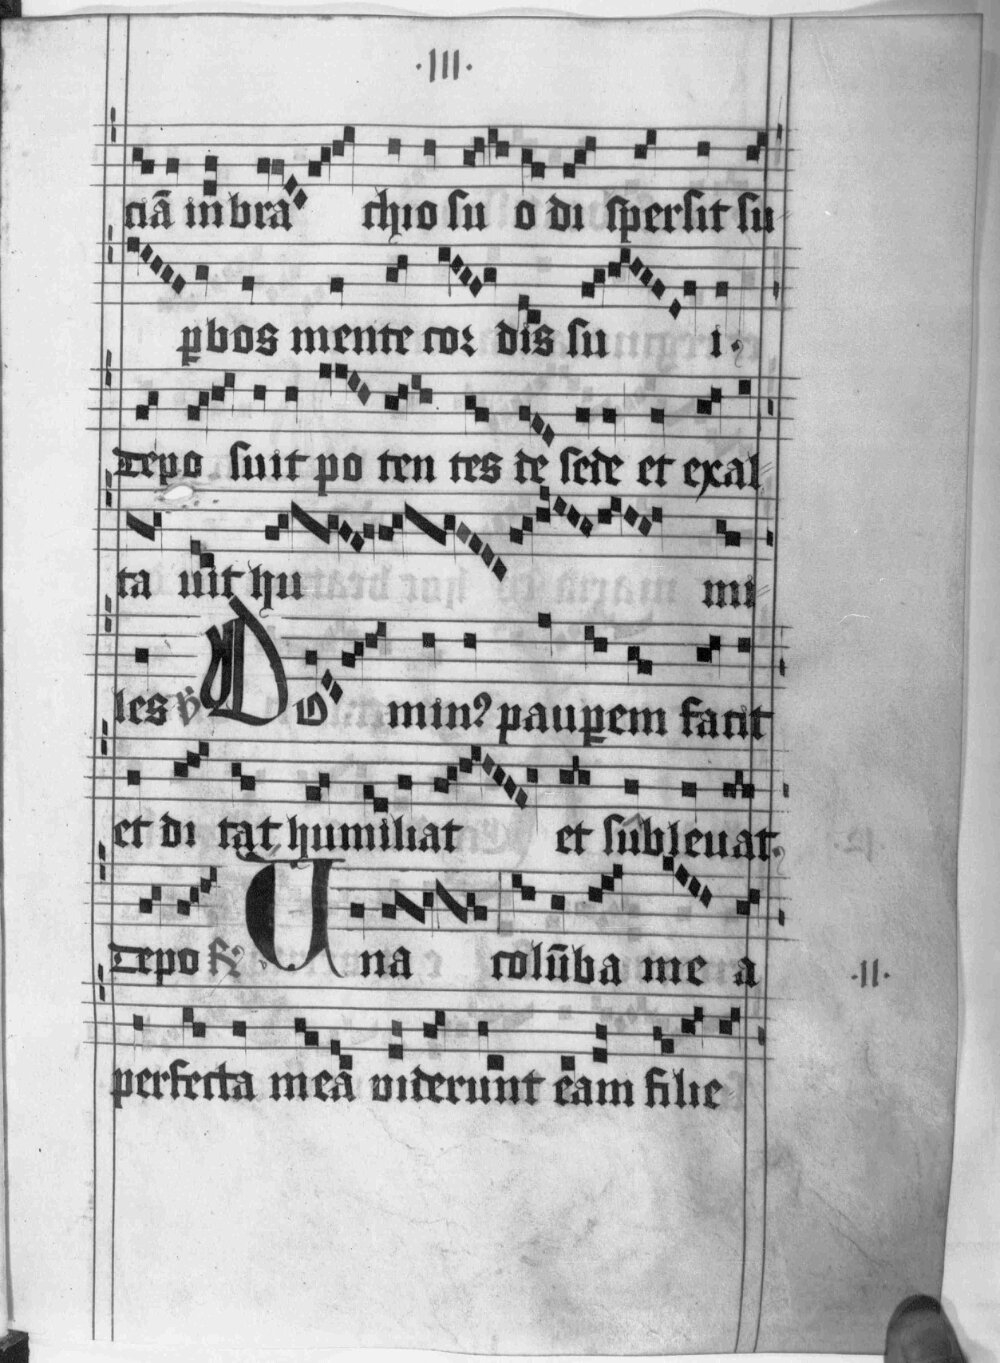 ·III·
ciā in bra chio su o di spersit su
ꝑbos mente coꝛ dis su i
Depo suit po ten tes de sede et exal
ta uit hu mi
les ℣ Do min⁹ pauꝑem facit
et di tat humiliat et subleuat
Depo ℟ Una colūba me a
·II·
perfecta mea viderunt eam filie